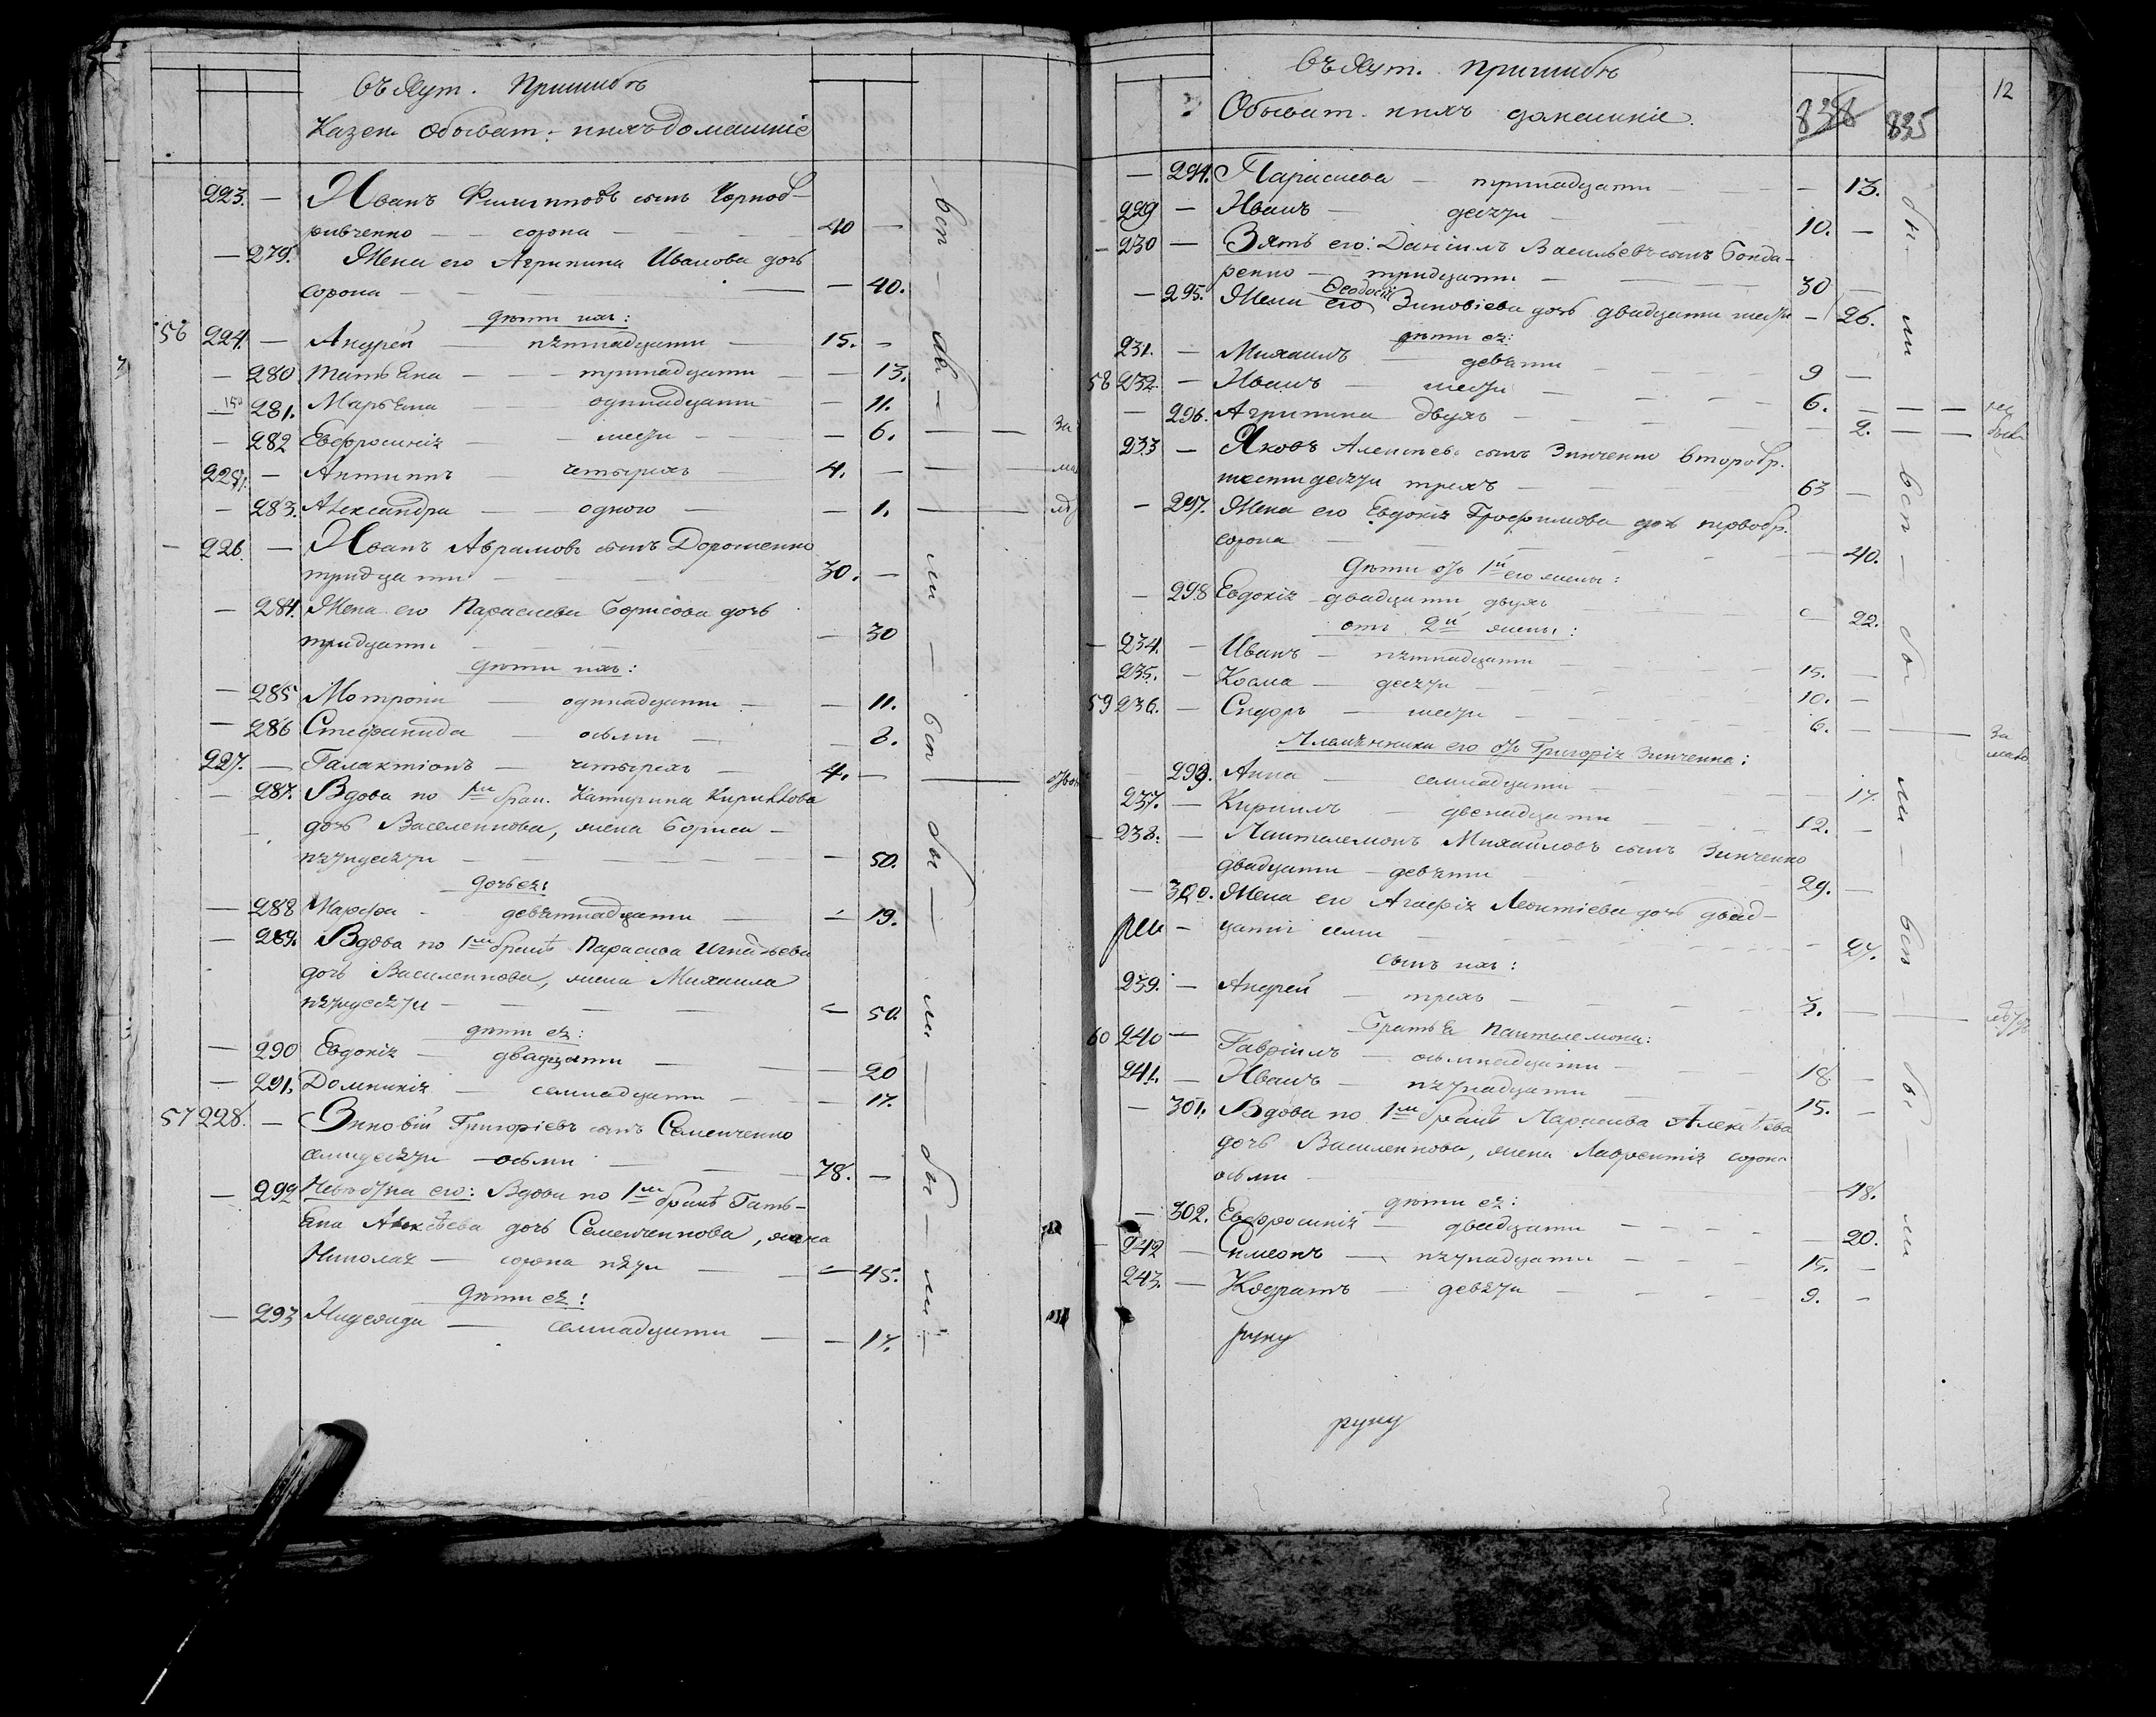 въ Хут. Пришибѣ
Казен. Обыват. и ихъ домашніе
223. — Иванъ Филипповъ сынъ Чорноб-
ривченко — сорока — 40 —
— 279. Жена его Агрипина Иванова дочь
сорока — — 40.
дѣти ихъ:
56 224. — Андрей — пятнадцати — 15. —
— 280 Татьяна — тринадцати — 13.
— 281. Марьяна — одинадцати — 11.
— 282 Евфросинія — шести — 6. — — за
225. — Антипъ четырехъ — 4. —
— 283. Александра — одного — 1. —
— 226. — Иванъ Аврамовъ сынъ Дорошенко
тридцати — 30. —
— 284. Жена его Параскева Борисова дочь
тридцати — 30
дѣти ихъ:
— 285 Мотрона — одинадцати — 11.
— 286 Стефанида — осьми — 8.
227. — Галактіонъ — четырехъ — 4. —
— 287. Вдова по 1мъ брак. Катерина Кирилова
дочь Василенкова, жена Бориса —
пятидесяти — 50.
дочь ея:
— 288 Марфа — девятнадцати — 19.
— 289. Вдова по 1мъ бракѣ Параскева Игнатьева
дочь Василенкова, жена Михаила
пятидесяти — 50.
дѣти ея:
— 290 Евдокія — двадцати — 20
— 291. Домникія — семнадцати — 17.
57 228. — Зиновій Григоріевъ сынъ Семенченко
семидесяти — осьми — 78. —
— 292 Невѣстка его: Вдова по 1мъ бракѣ Тать-
яна Алексѣева дочь Семенченкова, жена
Николая — сорока пяти — 45.
дѣти ея:
— 293 — семнадцати — 17.
бы ли
въ Хут. Пришибѣ
Обыват. и ихъ домашніе.
838 835 12
— 294. Параскева — тринадцати — 13.
229 — Иванъ — десяти — 10. —
— 230 — Зять его: Даніилъ Васильевъ сынъ Бонда-
ренко — тридцати — 30 —
Ѳеодосія
— 295. Жена его Зиновіева дочь двадцати шести — 26.
дѣти ея:
231. — Михаилъ — девяти — 9 —
58 232. — Иванъ — шести — 6. —
— 296. Агрипина двухъ — 2. —
233 — Яковъ Алексѣев. сынъ Зинченко второбр.
шестидесяти трехъ — 63 —
— 297. Жена его Евдокія Трофимова дочь первобр.
сорока — 40.
Дѣти отъ 1й его жены:
— 298 Евдокія двадцати двухъ — 22.
отъ 2й жены:
— 234. — Иванъ — пятнадцати — 15. —
235. — Косма — десяти — 10. —
59 236. — Сидоръ — шести — 6. — за
Племянники его отъ Григорія Зинченка:
— 299. Анна — семнадцати — 17.
237. — Кириллъ — двенадцати — 12. —
— 238. — Пантелемонъ Михайловъ сынъ Зинченко
двадцати — девяти — 29. —
— 300. Жена его Агафія Леонтіева дочь двад-
цати семи — 27.
сынъ ихъ:
239. — Андрей — трехъ — 3. —
Братья Пантелемона:
60 240 — Гавріилъ — осьмнадцати — 18 —
241. — Иванъ — пятнадцати — 15. —
— 301. Вдова по 1мъ бракѣ Параскева Алексѣева
дочь Василенкова, жена Лаврентія сорока
осьми — 48.
дѣти ея:
— 302. Евфросинія — двадцати — 20.
242 — Симеонъ — пятнадцати — 15. —
243. — Кодратъ — девяти — 9. —
руку
руку